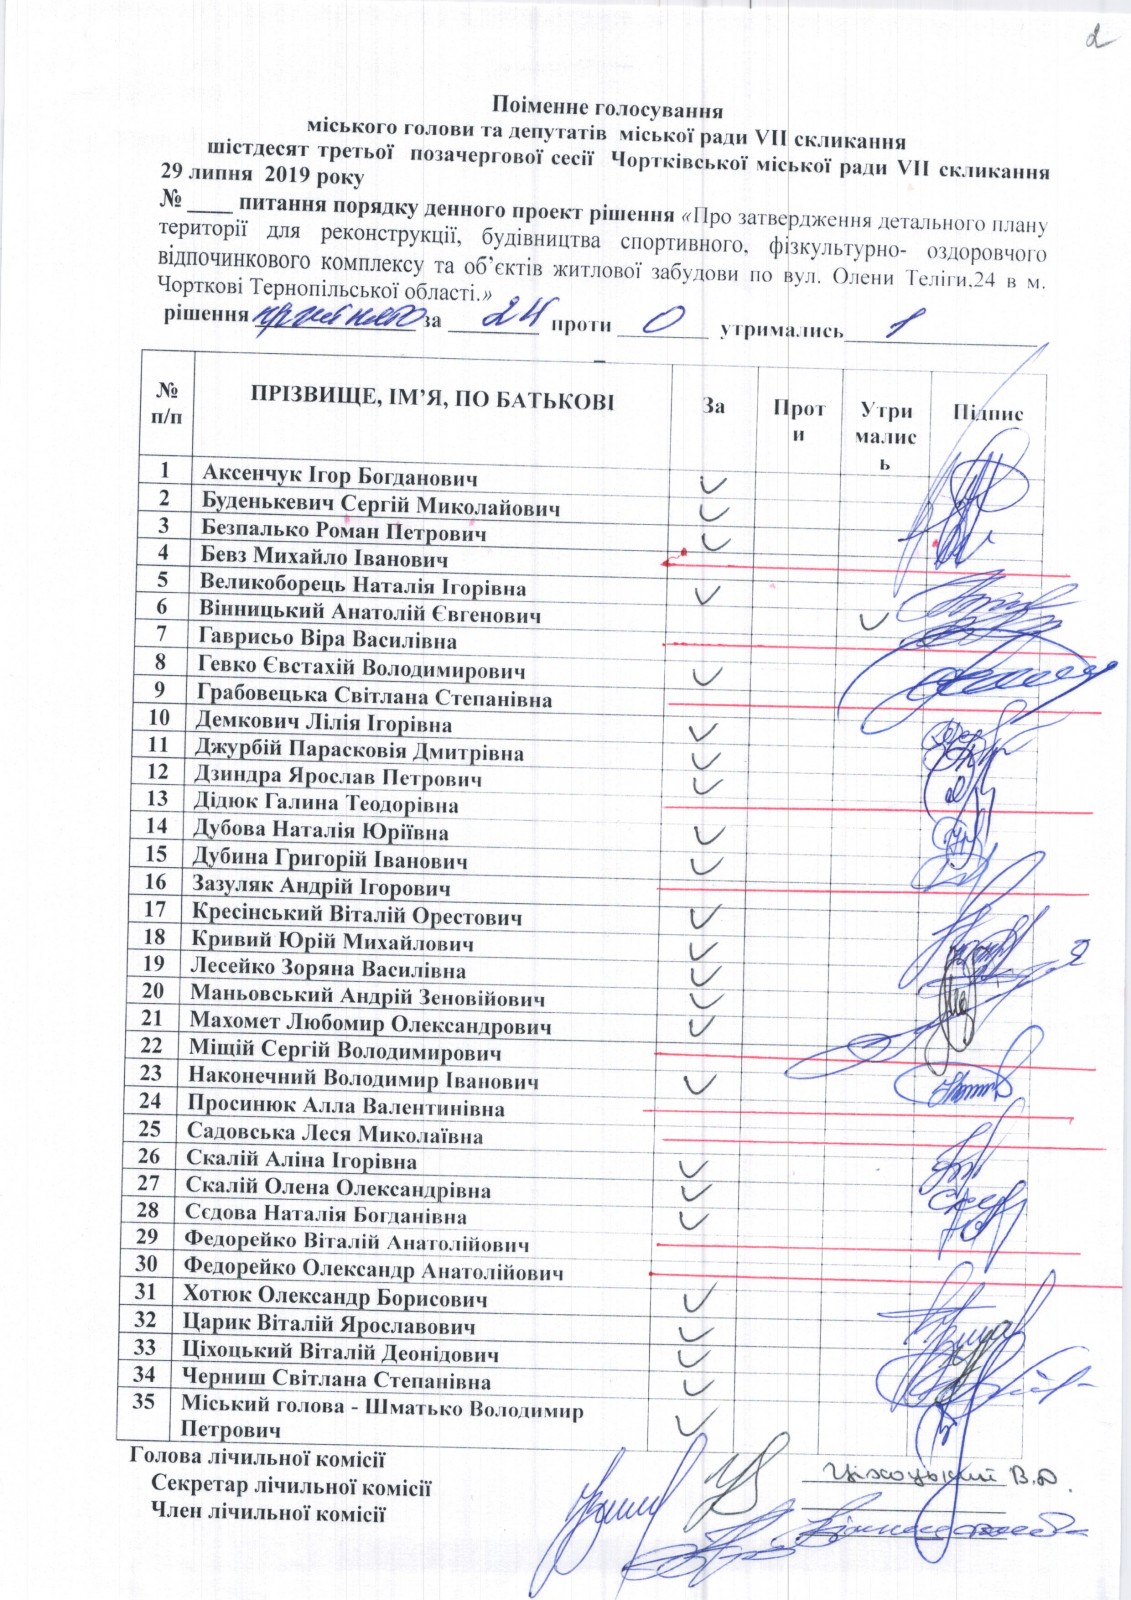 2
Поіменне голосування
міського голови та депутатів міської ради VII скликання
шістдесят третьої позачергової сесії Чортківської міської ради VII скликання
29 липня 2019 року
№ ____ питання порядку денного проект рішення «Про затвердження детального плану
території для реконструкції, будівництва спортивного, фізкультурно- оздоровчого
відпочинкового комплексу та об’єктів житлової забудови по вул. Олени Теліги,24 в м.
Чорткові Тернопільської області.»
рішення прийнято за 24 проти 0 утримались 1
№ п/п ПРІЗВИЩЕ, ІМ’Я, ПО БАТЬКОВІ За Проти Утрималисb Підпис
1 Аксенчук Ігор Богданович ✓
2 Буденькевич Сергій Миколайович ✓
3 Безпалько Роман Петрович ✓
4 Бевз Михайло Іванович
5 Великоборець Наталія Ігорівна ✓
6 Вінницький Анатолій Євгенович ✓
7 Гаврисьо Віра Василівна
8 Гевко Євстахій Володимирович ✓
9 Грабовецька Світлана Степанівна
10 Демкович Лілія Ігорівна ✓
11 Джурбій Парасковія Дмитрівна ✓
12 Дзиндра Ярослав Петрович ✓
13 Дідюк Галина Теодорівна
14 Дубова Наталія Юріївна ✓
15 Дубина Григорій Іванович ✓
16 Зазуляк Андрій Ігорович
17 Кресінський Віталій Орестович ✓
18 Кривий Юрій Михайлович ✓
19 Лесейко Зоряна Василівна ✓
20 Маньовський Андрій Зеновійович ✓
21 Махомет Любомир Олександрович ✓
22 Міщій Сергій Володимирович
23 Наконечний Володимир Іванович ✓
24 Просинюк Алла Валентинівна
25 Садовська Леся Миколаївна
26 Скалій Аліна Ігорівна ✓
27 Скалій Олена Олександрівна ✓
28 Сєдова Наталія Богданівна ✓
29 Федорейко Віталій Анатолійович
30 Федорейко Олександр Анатолійович
31 Хотюк Олександр Борисович ✓
32 Царик Віталій Ярославович ✓
33 Ціхоцький Віталій Деонідович ✓
34 Черниш Світлана Степанівна ✓
35 Міський голова - Шматько Володимир
Петрович ✓
Голова лічильної комісії Ціхоцький В.Д.
Секретар лічильної комісії
Член лічильної комісії